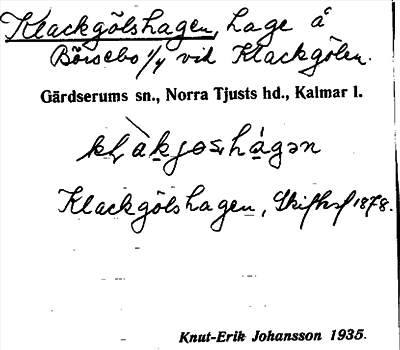 Klackgölshagen, hage å
Börsebo 1/4 vid Klackgölen.
Gärdserums sn., Norra Tjusts hd., Kalmar l.
Klackgölshagen, Skifksf 1878.
Knut-Erik Johansson 1935.